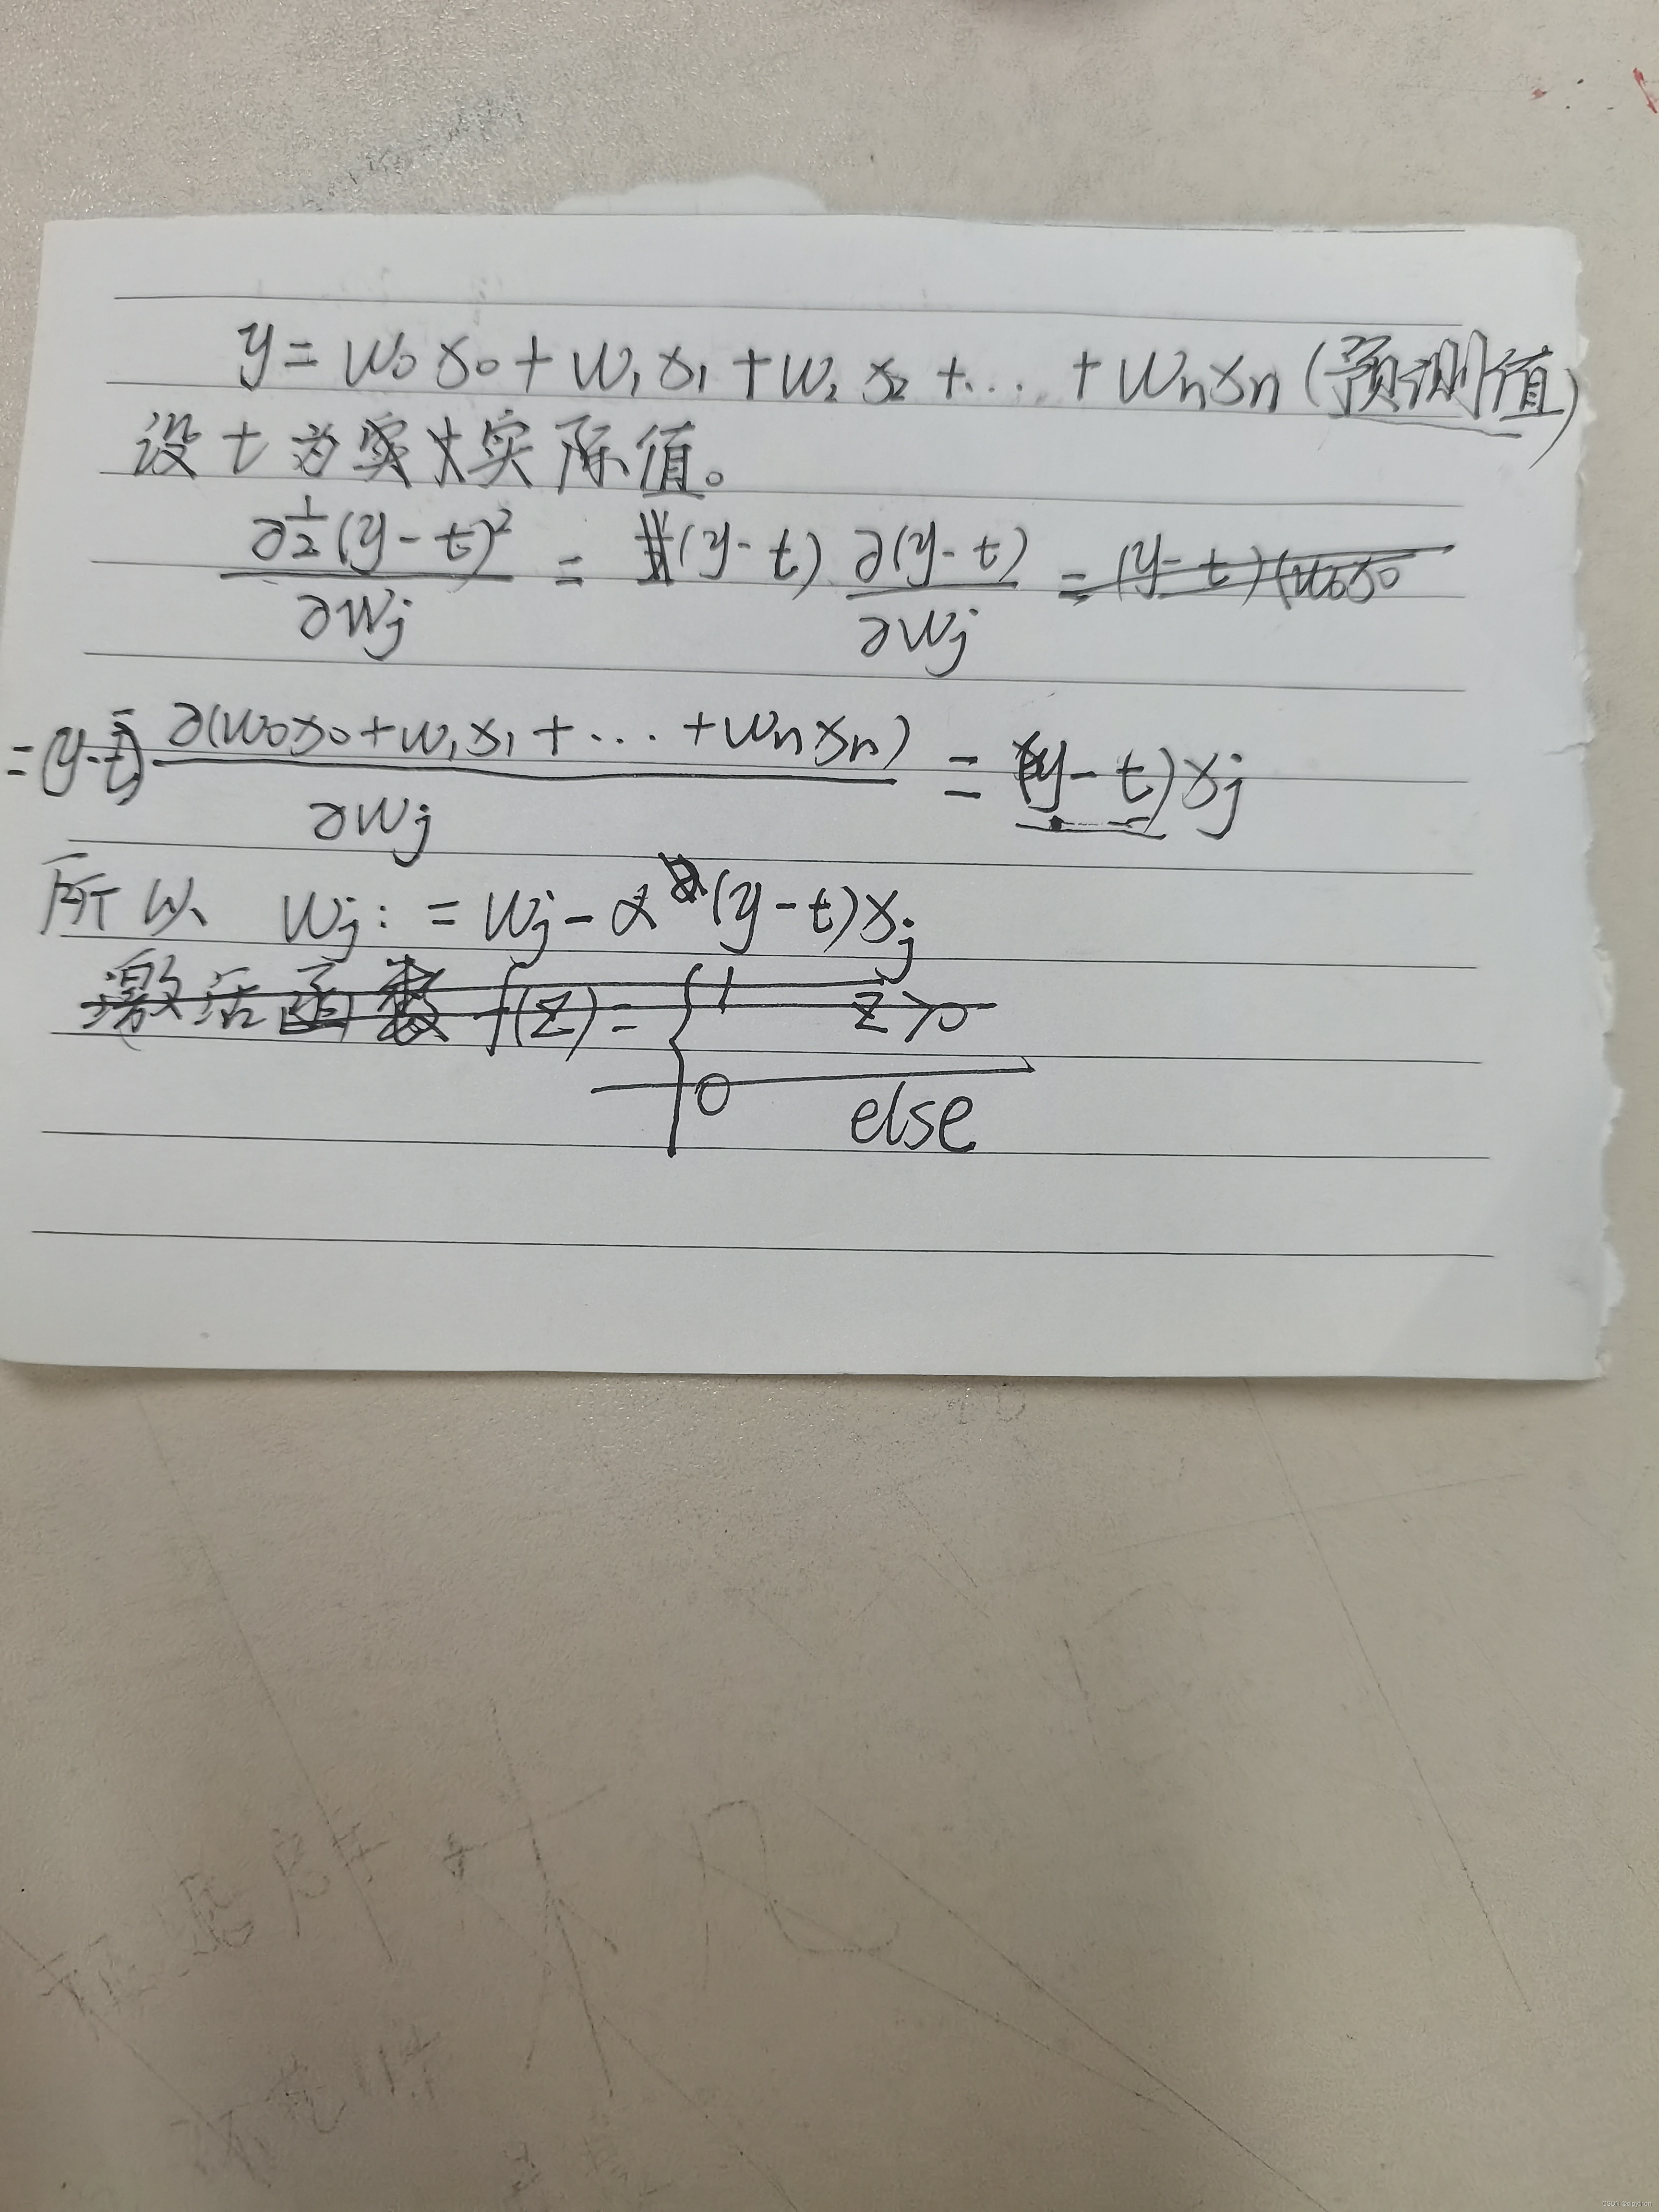 y = w₀x₀ + w₁x₁ + w₂x₂ + ... + wₙxₙ (预测值)
设 t 为实际值。
∂½(y-t)²/∂wⱼ = (y-t) ∂(y-t)/∂wⱼ = (y-t)(w₀x₀
= (y-t) ∂(w₀x₀ + w₁x₁ + ... + wₙxₙ)/∂wⱼ = (y-t)xⱼ
所以 wⱼ := wⱼ - α(y-t)xⱼ
激活函数 f(z) = { 1 z>0
0 else